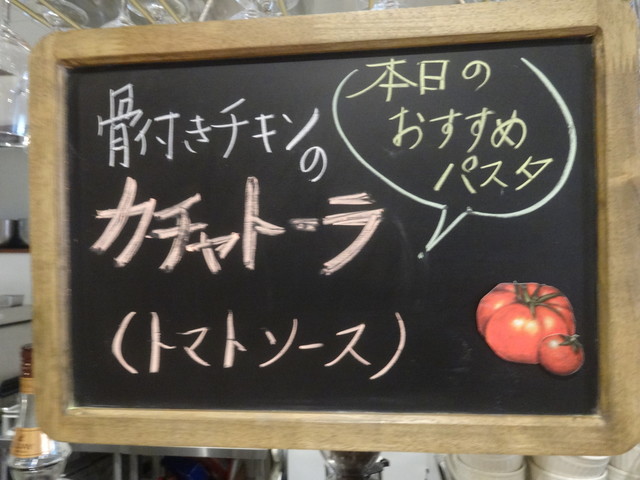 本日の
おすすめ
パスタ
骨付きチキンの
カチャトーラ
(トマトソース)